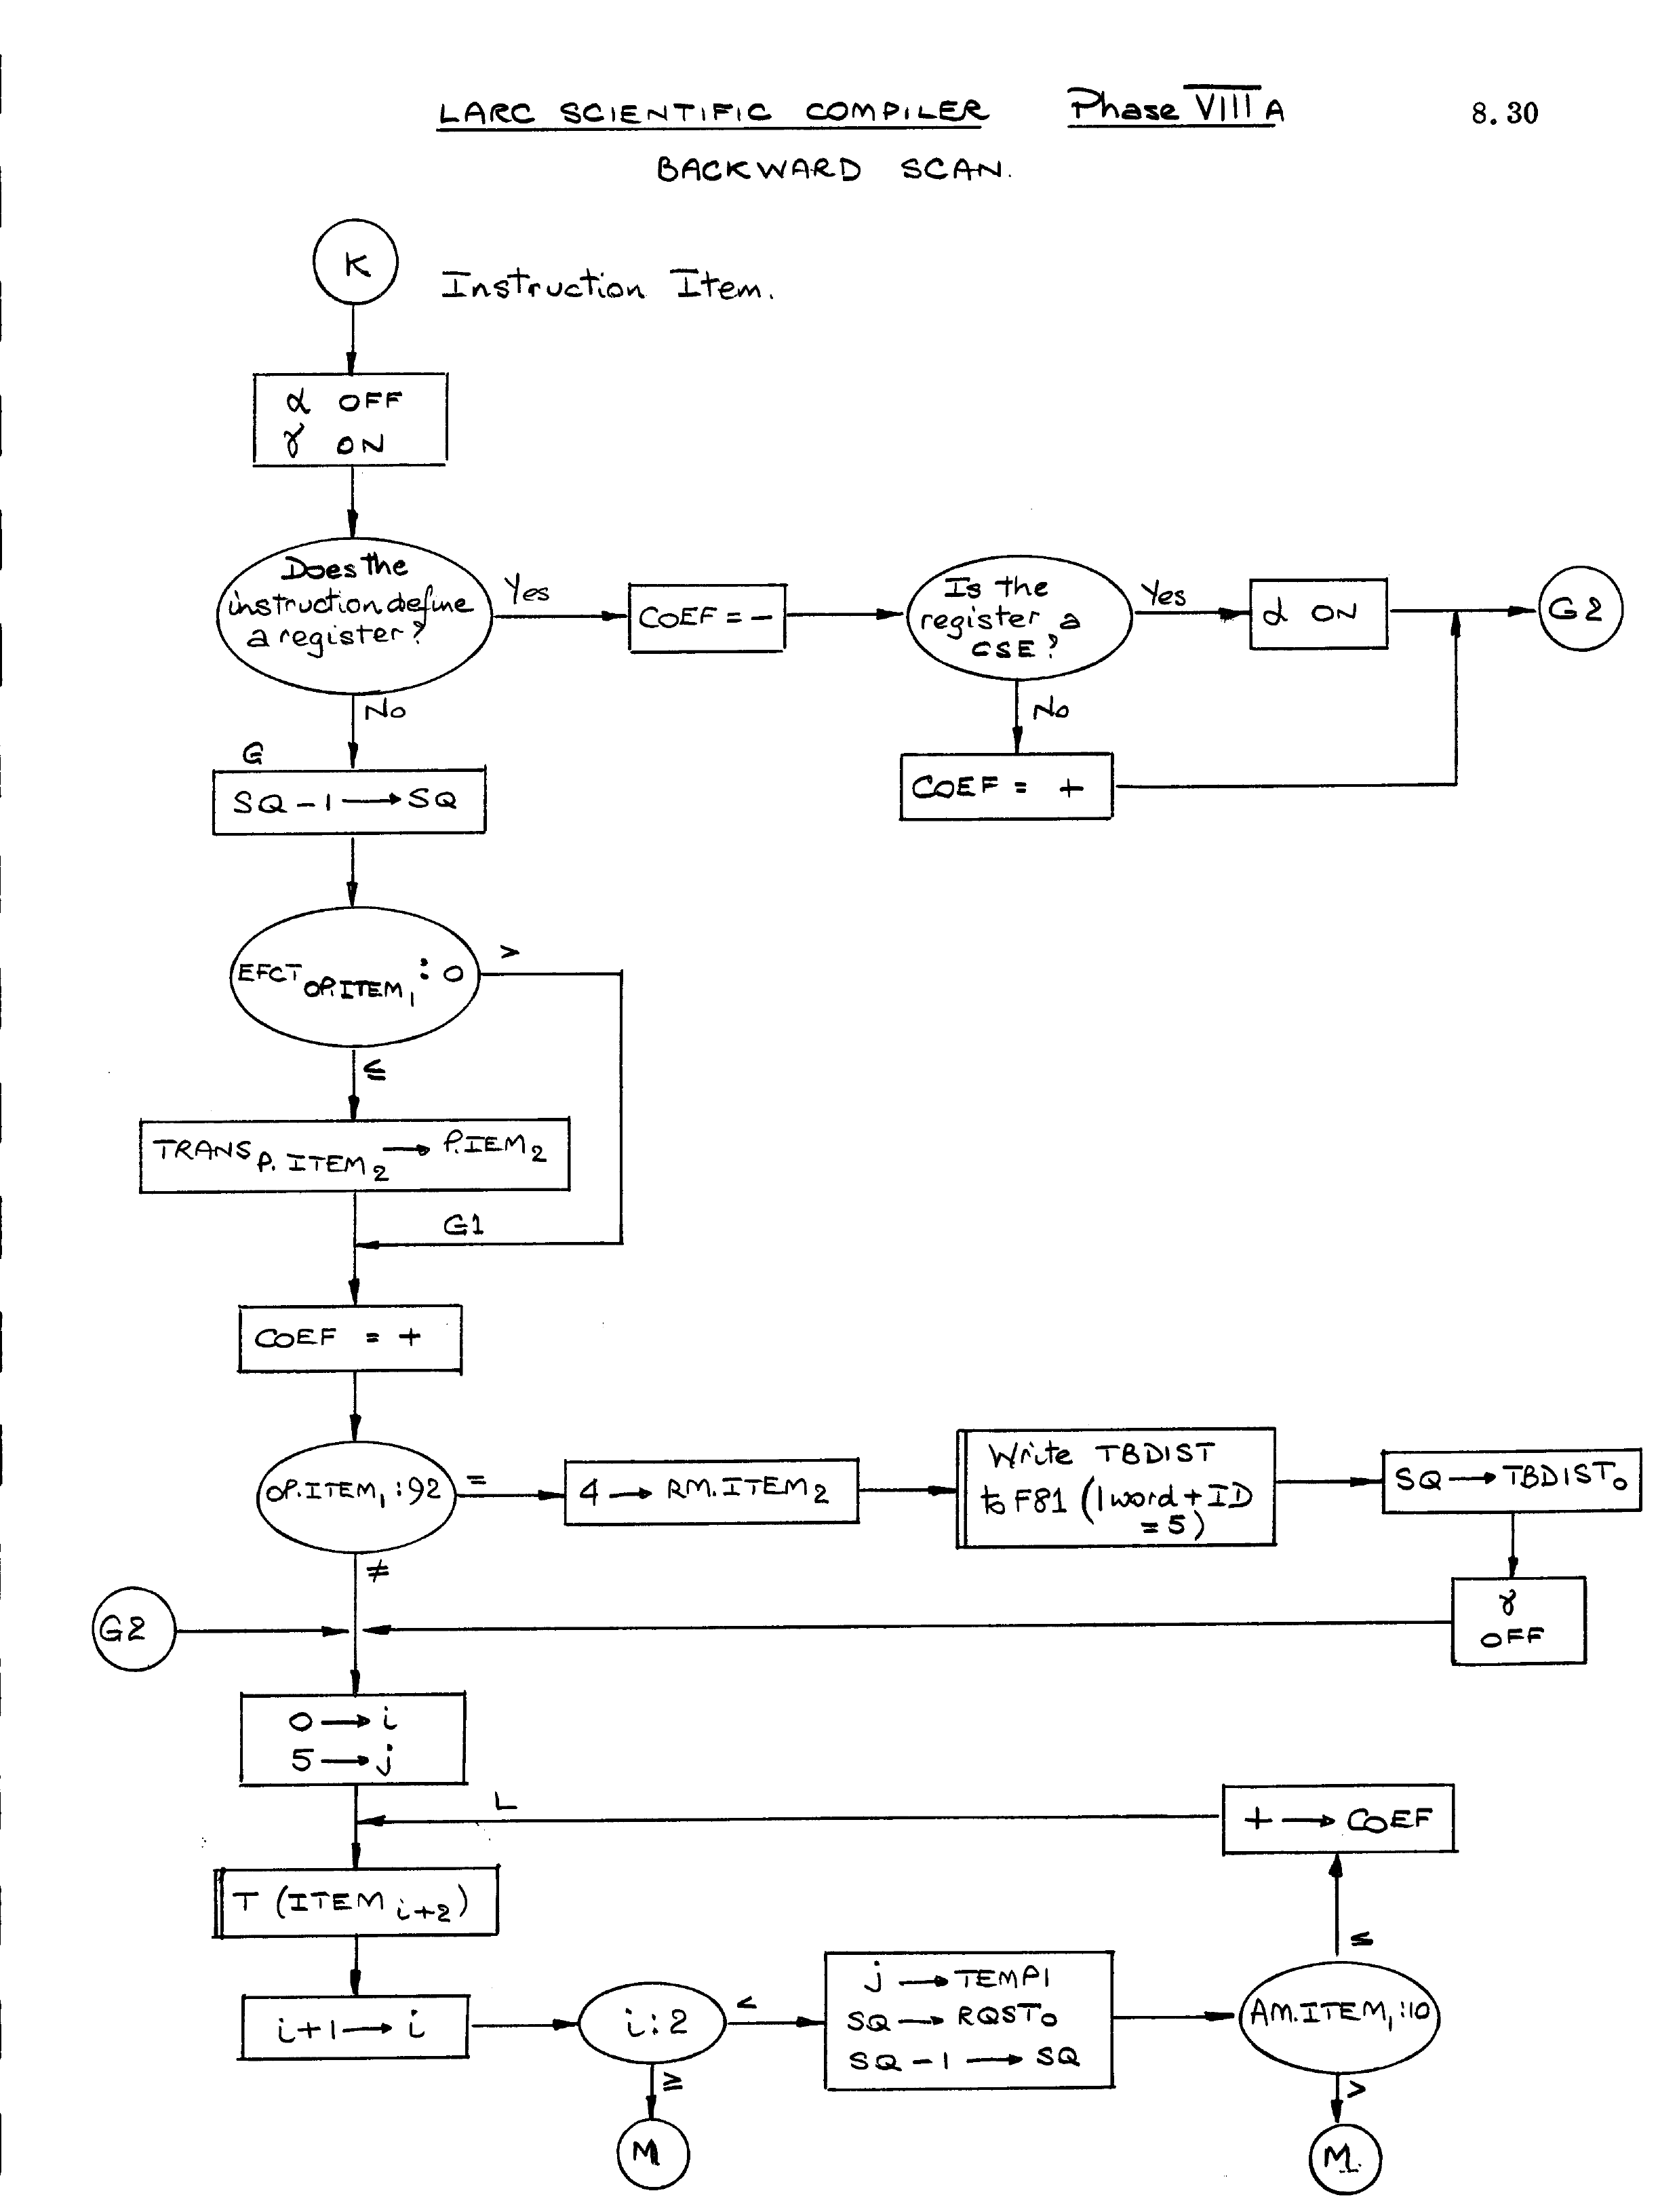 LARC SCIENTIFIC COMPILER Phase VIII A 8.30
BACKWARD SCAN.
K
Instruction Item.
α OFF
γ ON
Does the
instruction define
a register?
Yes
COEF = -
Is the
register a
CSE?
Yes
α ON
G2
No
No
COEF = +
G
SQ - 1 → SQ
EFCT OP.ITEM₁ : 0
>
≤
TRANS P.ITEM₂ → P.IEM₂
G1
COEF = +
OP.ITEM₁ : 92
=
4 → RM.ITEM₂
Write TBDIST
to F81 (1 word + ID
= 5)
SQ → TBDIST₀
≠
γ
OFF
G2
0 → i
5 → j
L
+ → COEF
T (ITEM i+2)
≤
i+1 → i
i : 2
<
j → TEMP1
SQ → RQST₀
SQ - 1 → SQ
AM.ITEM₁ : 10
≥
>
M
M.